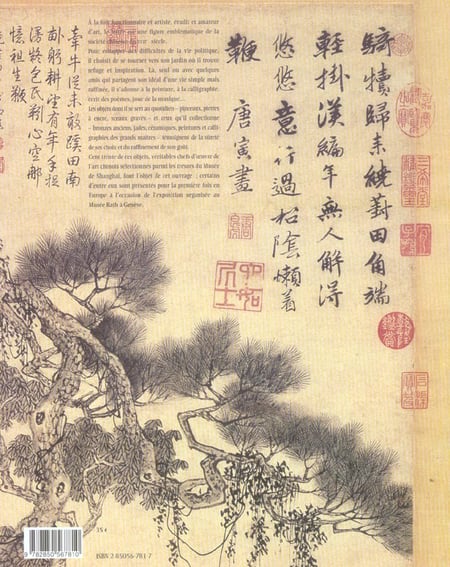 騎犢歸來繞葑田角端
輕掛漢編年無人解得
悠悠意行過松陰懶着
鞭 唐寅畫
牽牛從未敢蹊田南
畝躬耕望有年手
À la fois fonctionnaire et artiste, érudit et amateur
d'art, le lettré est une figure emblématique de la
société chinoise du siècle.
Pour échapper aux difficultés de la vie politique,
il choisit de se tourner vers son jardin où il trouve
refuge et inspiration. Là, seul ou avec quelques
amis qui partagent son idéal d'une vie simple mais
raffinée, il s'adonne à la peinture, à la calligraphie,
écrit des poèmes, joue de la musique...
Les objets dont il se sert au quotidien – pinceaux, pierres
à encre, sceaux gravés – et ceux qu'il collectionne
– bronzes anciens, jades, céramiques, peintures et calli-
graphies des grands maîtres – témoignent de la sûreté
de son choix et du raffinement de son goût.
Cent trente de ces objets, véritables chefs-d'œuvre de
l'art chinois sélectionnés parmi les trésors du Musée
de Shanghai, font l'objet de cet ouvrage ; certains
d'entre eux sont présentés pour la première fois en
Europe à l'occasion de l'exposition organisée au
Musée Rath à Genève.
35 €
9 782850 567810
ISBN 2-85056-781-7